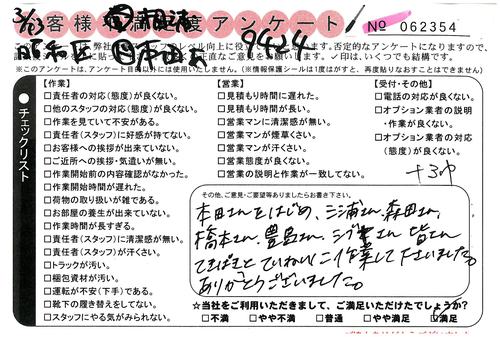 3/23
お客様満足度アンケート
№ 062354
昭和区
9424
※このアンケートは、アンケート目的以外には使用いたしません。(※情報保護シールは1度はがすと、再度貼りなおすことはできません)
チェックリスト
【作業】
□責任者の対応(態度)が良くない。
□他のスタッフの対応(態度)が良くない。
□作業を見ていて不安がある。
□責任者(スタッフ)に好感が持てない。
□お客様への挨拶が出来ていない。
□ご近所への挨拶・気遣いが無い。
□作業開始前の内容確認がなかった。
□作業開始時間が遅れた。
□荷物の取り扱いが雑である。
□お部屋の養生が出来ていない。
□作業時間が長すぎる。
□責任者(スタッフ)に清潔感が無い。
□責任者(スタッフ)が汗くさい。
□トラックが汚い。
□梱包資材が汚い。
□運転が不安(下手)である。
□靴下の履き替えをしてない。
□スタッフにやる気がみられない。
【営業】
□見積もり時間に遅れた。
□見積もり時間が長い。
□営業マンに清潔感が無い。
□営業マンが煙草くさい。
□営業マンが汗くさい。
□営業態度が良くない。
□営業の説明と作業が一致してない。
【受付・その他】
□電話の対応が良くない。
□オプション業者の説明・作業が良くない。
□オプション業者の対応(態度)が良くない。
その他、ご意見・ご要望等ありましたらお書き下さい。
本田さんをはじめ、三浦さん、森田さん、
橋本さん、豊島さん、
皆さん
てきぱきとていねいに作業して下さいました。
ありがとうございました。
☆当社をご利用いただきまして、ご満足いただけたでしょうか?
□不満 □やや不満 □普通 □やや満足 □満足